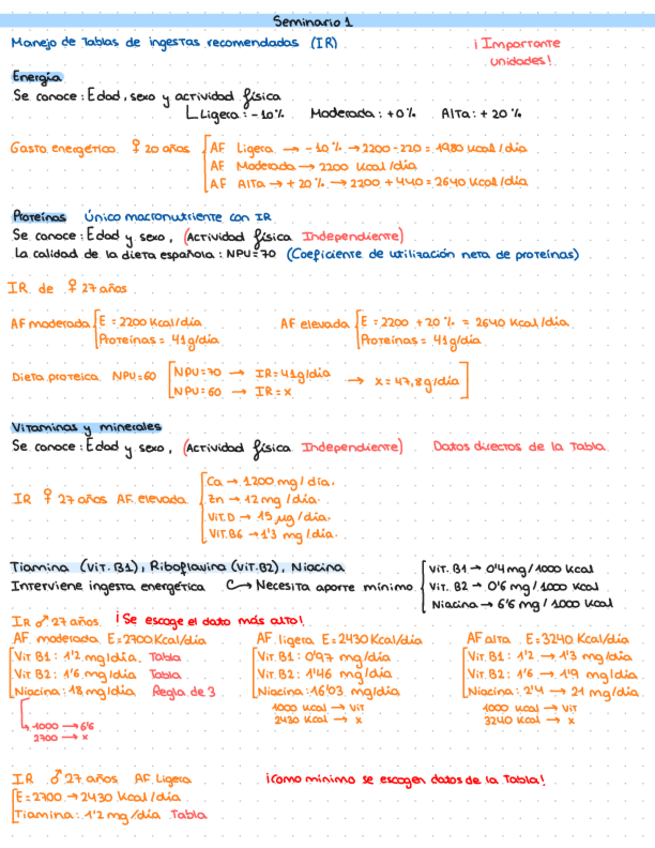 Seminario 1
Manejo de Tablas de ingestas recomendadas (IR)
¡Importante unidades!
Energía
Se conoce: Edad, sexo y actividad física
Ligera: -10% Moderada: +0% Alta: +20%
Gasto energético ♀ 20 años
AF Ligera → -10% → 2200-220 = 1980 Kcal/día
AF Moderada → 2200 Kcal/día
AF Alta → +20% → 2200 + 440 = 2640 Kcal/día
Proteínas Único macronutriente con IR
Se conoce: Edad y sexo, (Actividad física Independiente)
La calidad de la dieta española: NPU=70 (Coeficiente de utilización neta de proteínas)
IR de ♀ 27 años
AF moderada E = 2200 Kcal/día
Proteínas = 41g/día
AF elevada E = 2200 +20% = 2640 Kcal/día
Proteínas = 41g/día
Dieta proteica NPU=60
NPU=70 → IR=41g/día
NPU=60 → IR=x
→ x=47,8g/día
Vitaminas y minerales
Se conoce: Edad y sexo, (Actividad física Independiente) Datos directos de la Tabla
IR ♀ 27 años AF elevada
Ca → 1200 mg/día.
Zn → 12 mg/día.
Vit.D → 15 µg/día.
Vit.B6 → 1'3 mg/día.
Tiamina (Vit. B1), Riboflavina (Vit.B2), Niacina
Interviene ingesta energética → Necesita aporte mínimo
Vit. B1 → 0'4 mg/1000 Kcal
Vit. B2 → 0'6 mg/1000 Kcal
Niacina → 6'6 mg/1000 Kcal
IR ♂ 27 años ¡Se escoge el dato más alto!
AF moderada E=2700Kcal/día
Vit B1: 1'2 mg/día. Tabla
Vit B2: 1'6 mg/día Tabla
Niacina: 18 mg/día Regla de 3
1000 → 6'6
2700 → x
AF ligera E=2430Kcal/día
Vit B1: 0'97 mg/día
Vit B2: 1'46 mg/día
Niacina: 16'03 mg/día
1000 Kcal → Vit
2430 Kcal → x
AF alta E=3240 Kcal/día
Vit B1: 1'2 → 1'3 mg/día
Vit B2: 1'6 → 1'9 mg/día
Niacina: 2'4 → 21 mg/día
1000 Kcal → Vit
3240 Kcal → x
IR ♂ 27 años AF Ligera ¡Como mínimo se escogen datos de la Tabla!
E=2700 → 2430 Kcal/día
Tiamina: 1'2 mg/día Tabla